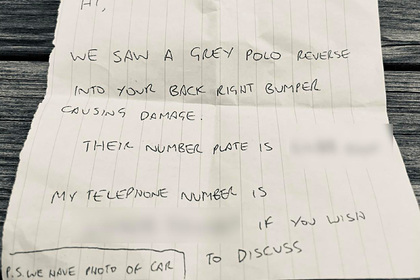 HI,
WE SAW A GREY POLO REVERSE
INTO YOUR BACK RIGHT BUMPER
CAUSING DAMAGE.
THEIR NUMBER PLATE IS
MY TELEPHONE NUMBER IS
IF YOU WISH
TO DISCUSS
P.S. WE HAVE PHOTO OF CAR